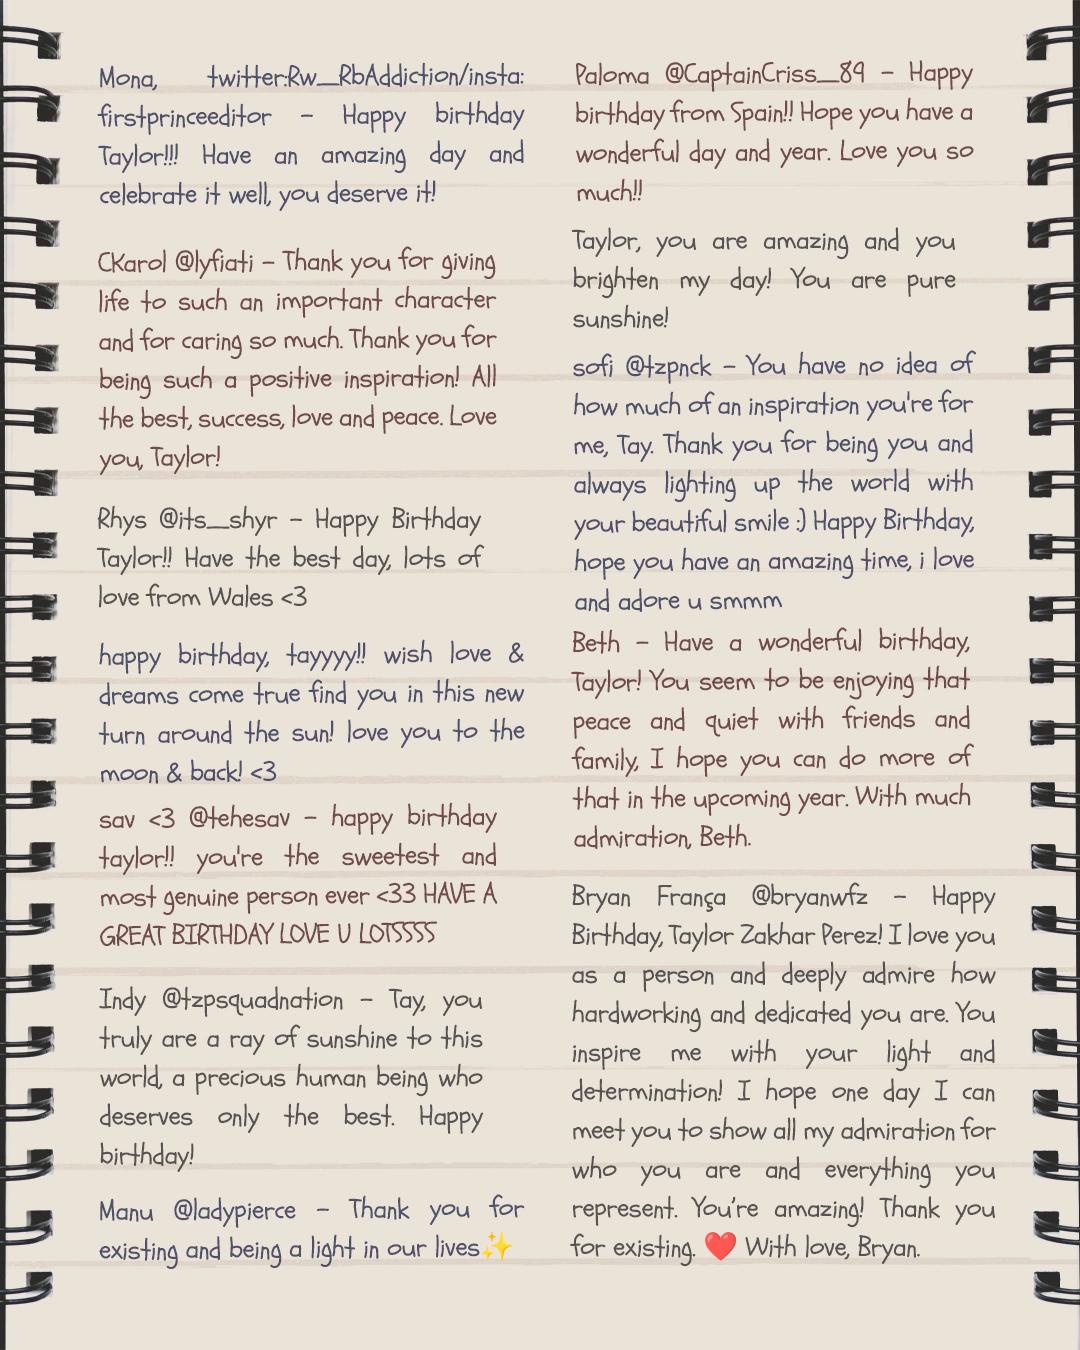 Mona, twitter:Rw__RbAddiction/insta:
firstprinceeditor – Happy birthday
Taylor!!! Have an amazing day and
celebrate it well, you deserve it!
CKarol @lyfiati – Thank you for giving
life to such an important character
and for caring so much. Thank you for
being such a positive inspiration! All
the best, success, love and peace. Love
you, Taylor!
Rhys @its__shyr – Happy Birthday
Taylor!! Have the best day, lots of
love from Wales <3
happy birthday, tayyyy!! wish love &
dreams come true find you in this new
turn around the sun! love you to the
moon & back! <3
sav <3 @tehesav – happy birthday
taylor!! you're the sweetest and
most genuine person ever <33 HAVE A
GREAT BIRTHDAY LOVE U LOTSSSS
Indy @tzpsquadnation – Tay, you
truly are a ray of sunshine to this
world, a precious human being who
deserves only the best. Happy
birthday!
Manu @ladypierce – Thank you for
existing and being a light in our lives✨
Paloma @CaptainCriss__89 – Happy
birthday from Spain!! Hope you have a
wonderful day and year. Love you so
much!!
Taylor, you are amazing and you
brighten my day! You are pure
sunshine!
sofi @tzpnck – You have no idea of
how much of an inspiration you're for
me, Tay. Thank you for being you and
always lighting up the world with
your beautiful smile :) Happy Birthday,
hope you have an amazing time, i love
and adore u smmm
Beth – Have a wonderful birthday,
Taylor! You seem to be enjoying that
peace and quiet with friends and
family, I hope you can do more of
that in the upcoming year. With much
admiration, Beth.
Bryan França @bryanwfz – Happy
Birthday, Taylor Zakhar Perez! I love you
as a person and deeply admire how
hardworking and dedicated you are. You
inspire me with your light and
determination! I hope one day I can
meet you to show all my admiration for
who you are and everything you
represent. You’re amazing! Thank you
for existing. ❤️ With love, Bryan.